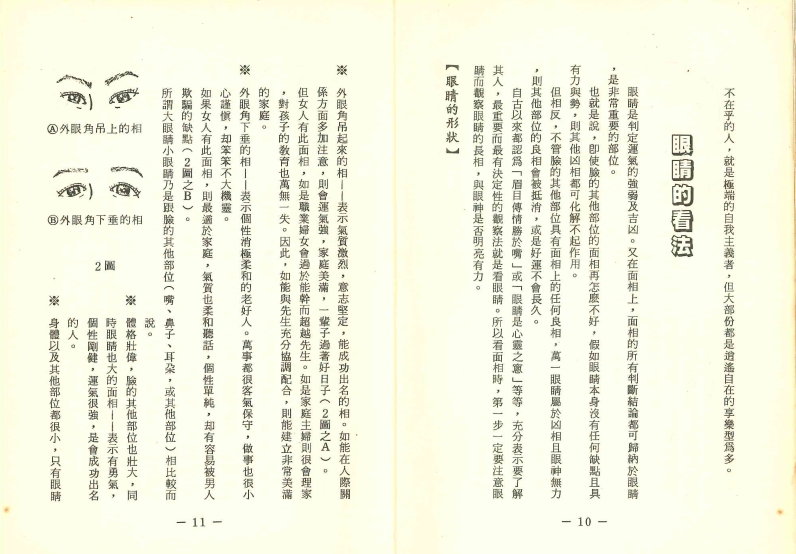 不在乎的人，就是極端的自我主義者，但大部份都是逍遙自在的享樂型爲多。
眼睛的看法
眼睛是判定運氣的強弱及吉凶。又在面相上，面相的所有判斷結論都可歸納於眼睛
，是非常重要的部位。
也就是說，卽使臉的其他部位的面相再怎麼不好，假如眼睛本身沒有任何缺點且具
有力與勢，則其他凶相都可化解不起作用。
但相反，不管臉的其他部位具有面相上的任何良相，萬一眼睛屬於凶相且眼神無力
，則其他部位的良相會被抵消，或是好運不會長久。
自古以來都認爲「眉目傳情勝於嘴」或「眼睛是心靈之窻」等等，充分表示要了解
其人，最重要而最有決定性的觀察法就是看眼睛。所以看面相時，第一步一定要注意眼
睛而觀察眼睛的長相，與眼神是否明亮有力。
【眼睛的形狀】
－10－
※ 外眼角吊起來的相——表示氣質激烈，意志堅定，能成功出名的相。如能在人際關
係方面多加注意，則會運氣強，家庭美滿，一輩子過著好日子（2圖之A）。
但女人有此面相，如是職業婦女會過於能幹而超越先生。如是家庭主婦則很會理家
，對孩子的敎育也萬無一失。因此，如能與先生充分協調配合，則能建立非常美滿
的家庭。
※ 外眼角下垂的相——表示個性消極柔和的老好人。萬事都很客氣保守，做事也很小
心謹愼，却笨笨不大機靈。
如果女人有此面相，則最適於家庭，氣質也柔和聽話，個性單純，却有容易被男人
欺騙的缺點（2圖之B）。
所謂大眼睛小眼睛乃是跟臉的其他部位（嘴、鼻子、耳朶，或其他部位）相比較而
說。
※ 體格壯偉，臉的其他部位也壯大，同
時眼睛也大的面相——表示有勇氣，
個性剛健，運氣很強，是會成功出名
的人。
※ 身體以及其他部位都很小，只有眼睛
Ⓐ外眼角吊上的相
Ⓑ外眼角下垂的相
2圖
－11－